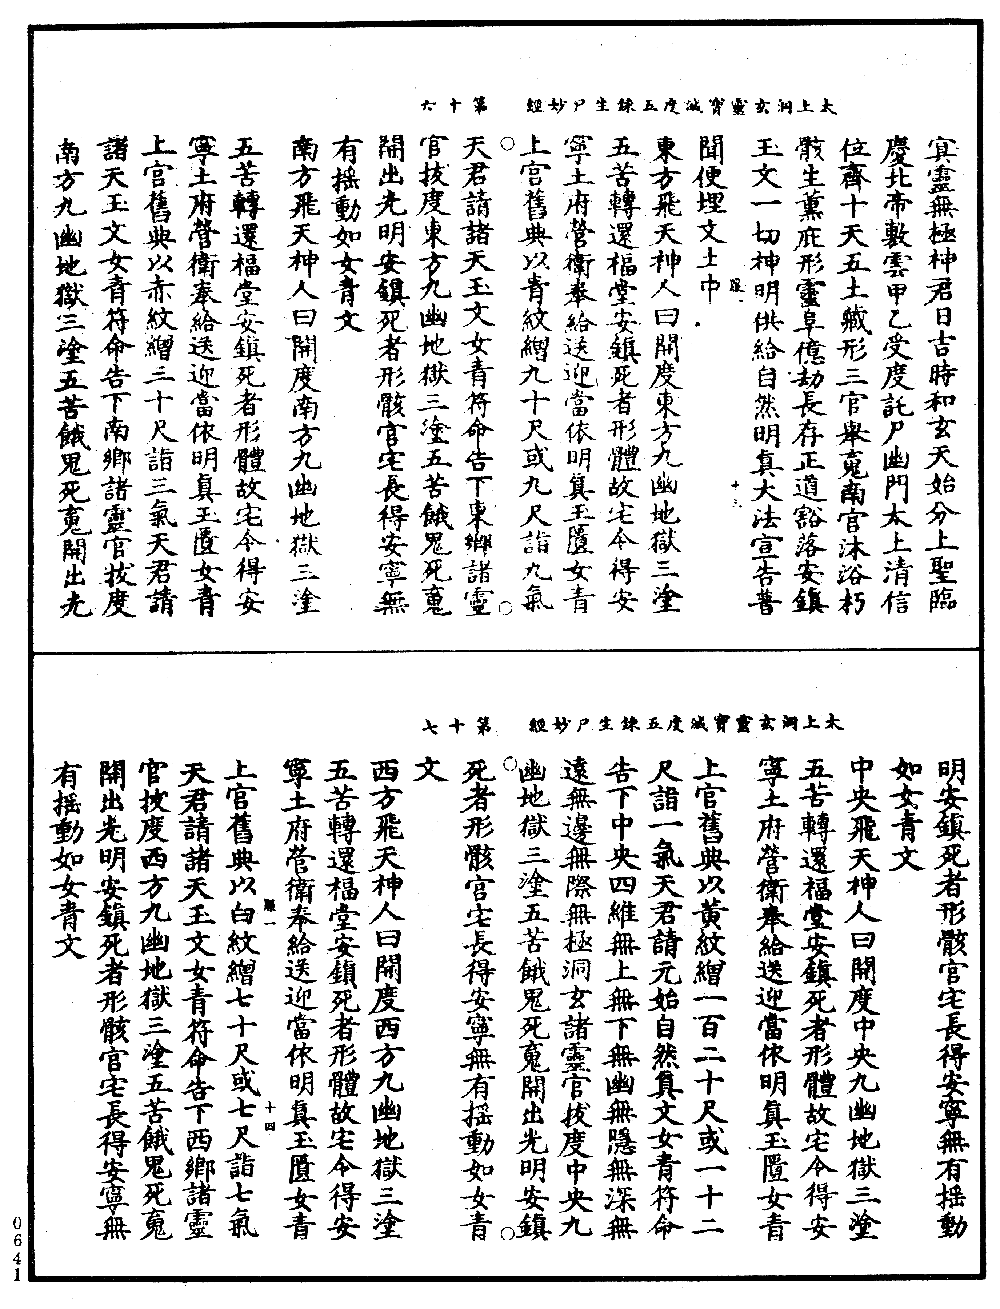 太上洞玄靈寶滅度五鍊生尸妙經　第十六
冥靈無極神君日吉時和玄天始分上聖臨
慶北帝敷雲甲乙受度託尸幽門太上清信
位齊十天五土藏形三官舉䰟南宮沐浴朽
骸生薰庇形靈阜億劫長存正道豁落安鎮
玉文一切神明供給自然明真大法宣告普
聞便埋文土中
十三
東方飛天神人曰開度東方九幽地獄三塗
五苦轉還福堂安鎮死者形體故宅令得安
寧土府營衛奉給送迎當依明真玉匱女青
上宮舊典以青紋繒九十尺或九尺詣九氣
天君請諸天玉文女青符命告下東鄉諸靈
官拔度東方九幽地獄三塗五苦餓鬼死䰟
開出光明安鎮死者形骸宮宅長得安寧無
有搖動如女青文
南方飛天神人曰開度南方九幽地獄三塗
五苦轉還福堂安鎮死者形體故宅令得安
寧土府營衛奉給送迎當依明真玉匱女青
上宮舊典以赤紋繒三十尺詣三氣天君請
諸天玉文女青符命告下南鄉諸靈官拔度
南方九幽地獄三塗五苦餓鬼死䰟開出光
太上洞玄靈寶滅度五鍊生尸妙經　第十七
明安鎮死者形骸宮宅長得安寧無有搖動
如女青文
中央飛天神人曰開度中央九幽地獄三塗
五苦轉還福堂安鎮死者形體故宅令得安
寧土府營衛奉給送迎當依明真玉匱女青
上宮舊典以黃紋繒一百二十尺或一十二
尺詣一氣天君請元始自然真文女青符命
告下中央四維無上無下無幽無隱無深無
遠無邊無際無極洞玄諸靈官拔度中央九
幽地獄三塗五苦餓鬼死䰟開出光明安鎮
死者形骸宮宅長得安寧無有搖動如女青
文
西方飛天神人曰開度西方九幽地獄三塗
五苦轉還福堂安鎮死者形體故宅令得安
寧土府營衛奉給送迎當依明真玉匱女青
十四
上宮舊典以白紋繒七十尺或七尺詣七氣
天君請諸天玉文女青符命告下西鄉諸靈
官拔度西方九幽地獄三塗五苦餓鬼死䰟
開出光明安鎮死者形骸宮宅長得安寧無
有搖動如女青文
0641